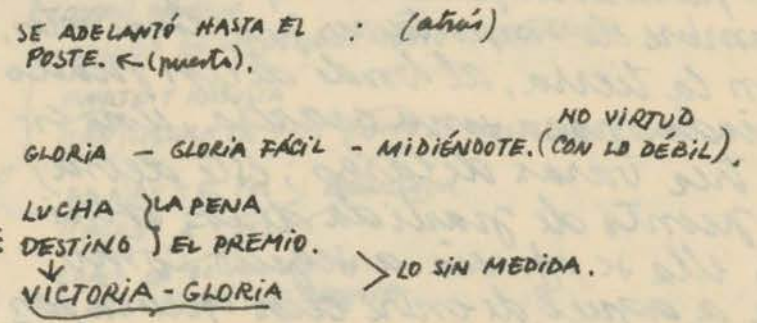 SE ADELANTÓ HASTA EL : (atrás)
POSTE. ← (puesto).
NO VIRTUD
GLORIA — GLORIA FÁCIL - MIDIÉNDOTE. (CON LO DÉBIL).
LUCHA } LA PENA
DESTINO } EL PREMIO.
↓ > LO SIN MEDIDA.
VICTORIA - GLORIA